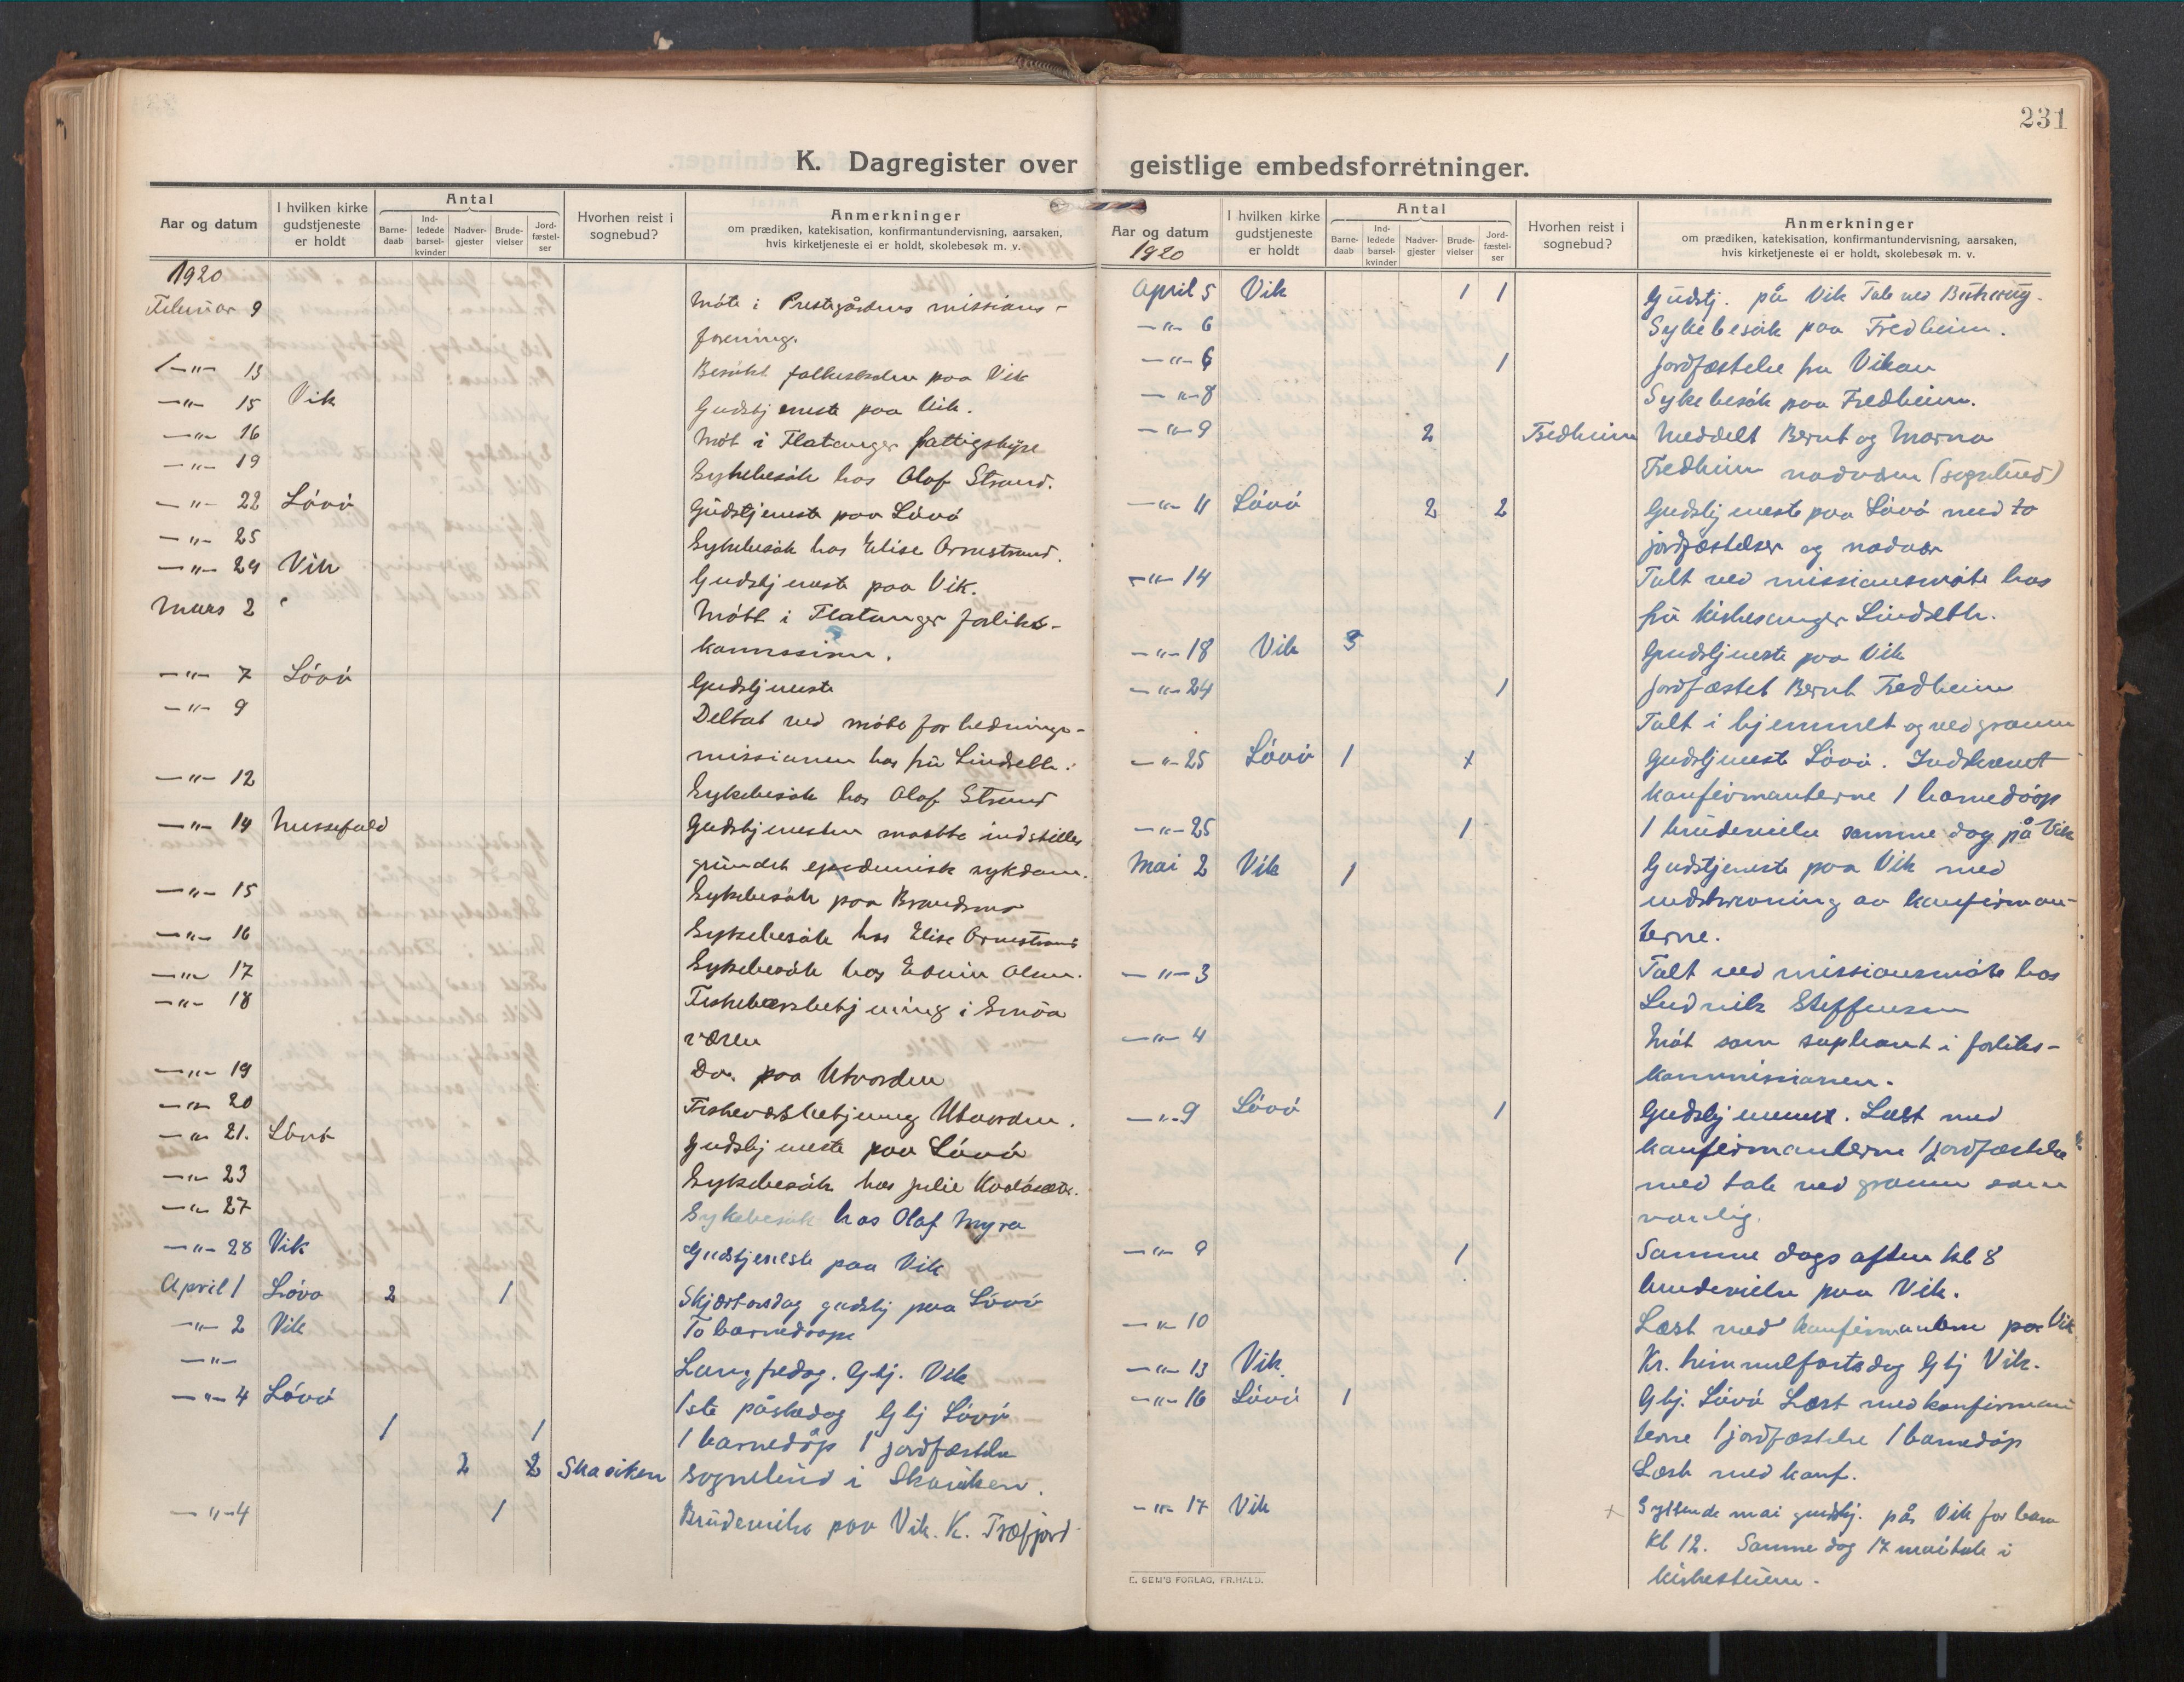 231
K. Dagregister over geistlige embedsforretninger.
Aar og datum
I hvilken kirke gudstjeneste er holdt
Antal
Barne-daab
Ind-ledede barsel-kvinder
Nadver-gjester
Brude-vielser
Jord-fæstel-ser
Hvorhen reist i sognebud?
Anmerkninger
om prædiken, katekisation, konfirmantundervisning, aarsaken, hvis kirketjeneste ei er holdt, skolebesøk m. v.
1920
Februar 9 Møte i Prestegårdens missions-
forening.
-"- 13 Besøkt folkeskolen paa Vik
-"- 15 Vik Gudstjeneste paa Vik.
-"- 16 Møt i Flatanger fattigstyre
-"- 19 Sykebesøk hos Olaf Strand.
-"- 22 Løvø Gudstjeneste paa Løvø
-"- 25 Sykebesøk hos Elise Ormstrand.
-"- 29 Vik Gudstjeneste paa Vik.
Mars 2 Møtt i Flatanger forliks-
kommission.
-"- 7 Løvø Gudstjeneste
-"- 9 Deltat ved møte for hednings-
missionen hos fru Lindseth.
-"- 12 Sykebesøk hos Olaf Strand
-"- 14 Gudstjenesten maatte indstilles
grundet epidemisk sykdom.
-"- 15 Sykebesøk paa Brandsmo
-"- 16 Sykebesøk hos Elise Ormstrand
-"- 17 Sykebesøk hos Edvin Olsen.
-"- 18 Fiskeværsbetjening i Småa
været
-"- 19 Do. paa Utvorden
-"- 20 Fiskeværsbetjening Utvorden.
-"- 21. Løvø Gudstjeneste paa Løvø
-"- 23 Sykebesøk hos Julie
-"- 27 Sykebesøk hos Olaf Myra
-"- 28 Vik Gudstjeneste paa Vik
April 1 Løvø 2 1 Skjærtorsdag gudstj paa Løvø
To barnedaape
-"- 2 Vik
-"- Langfredag. Gtj. Vik
-"- 4 Løvø 1ste påskedag Gtj Løvø
1 1 1 barnedåp 1 jordfæstelse
2 2 Skaviken Sognebud i Skaviken.
-"- 4 1 Brudevielse paa Vik. K. Træfjord
Aar og datum
I hvilken kirke gudstjeneste er holdt
Antal
Barne-daab
Ind-ledede barsel-kvinder
Nadver-gjester
Brude-vielser
Jord-fæstel-ser
Hvorhen reist i sognebud?
Anmerkninger
om prædiken, katekisation, konfirmantundervisning, aarsaken, hvis kirketjeneste ei er holdt, skolebesøk m. v.
1920
April 5 Vik 1 1 Gudstj. på Vik Tale ved
-"- 6 Sykebesøk paa Fredheim.
-"- 6 1 Jordfæstelse fra Vikan
-"- 8 Sykebesøk paa Fredheim.
-"- 9 2 Fredheim Meddelt Bernt og Marna
Fredheim nadveren (sognebud)
-"- 11 Løvø 2 2 Gudstjeneste paa Løvø med to
jordfæstelser og nadver
-"- 14 Talt ved missionsmøte hos
fru kirkesanger Lindseth.
-"- 18 Vik 3 Gudstjeneste paa Vik
-"- 24 1 Jordfæstet Bernt Fredheim
Talt i hjemmet og ved graven
-"- 25 Løvø 1 Gudstjeneste Løvø. Indskrevet
konfirmanterne 1 barnedåp
-"- 25 1 1 brudevielse samme dag på Vik
Mai 2 Vik 1 Gudstjeneste paa Vik med
indskrivning av konfirman-
terne.
-"- 3 Talt ved missionsmøte hos
Ludvik Steffensen
-"- 4 Møt som supleant i forliks-
kommissionen.
-"- 9 Løvø 1 Gudstjeneste. Læst med
konfirmanterne 1 jordfæstelse
med tale ved graven som
vanlig.
-"- 9 1 Samme dags aften kl 8
brudevielse paa Vik.
-"- 10 Læst med konfirmanterne paa Vik
-"- 13 Vik. Kr. himmelfartsdag Gtj Vik.
-"- 16 Løvø 1 Gtj. Løvø Læst med konfirman
terne 1 jordfæstelse 1 barnedåp
Læst med konf.
-"- 17 Vik Syttende mai gudstj. på Vik for barn
kl 12. Samme dag 17 maitale i
kirkestuen.
E. SEM'S FORLAG, FR.HALD.